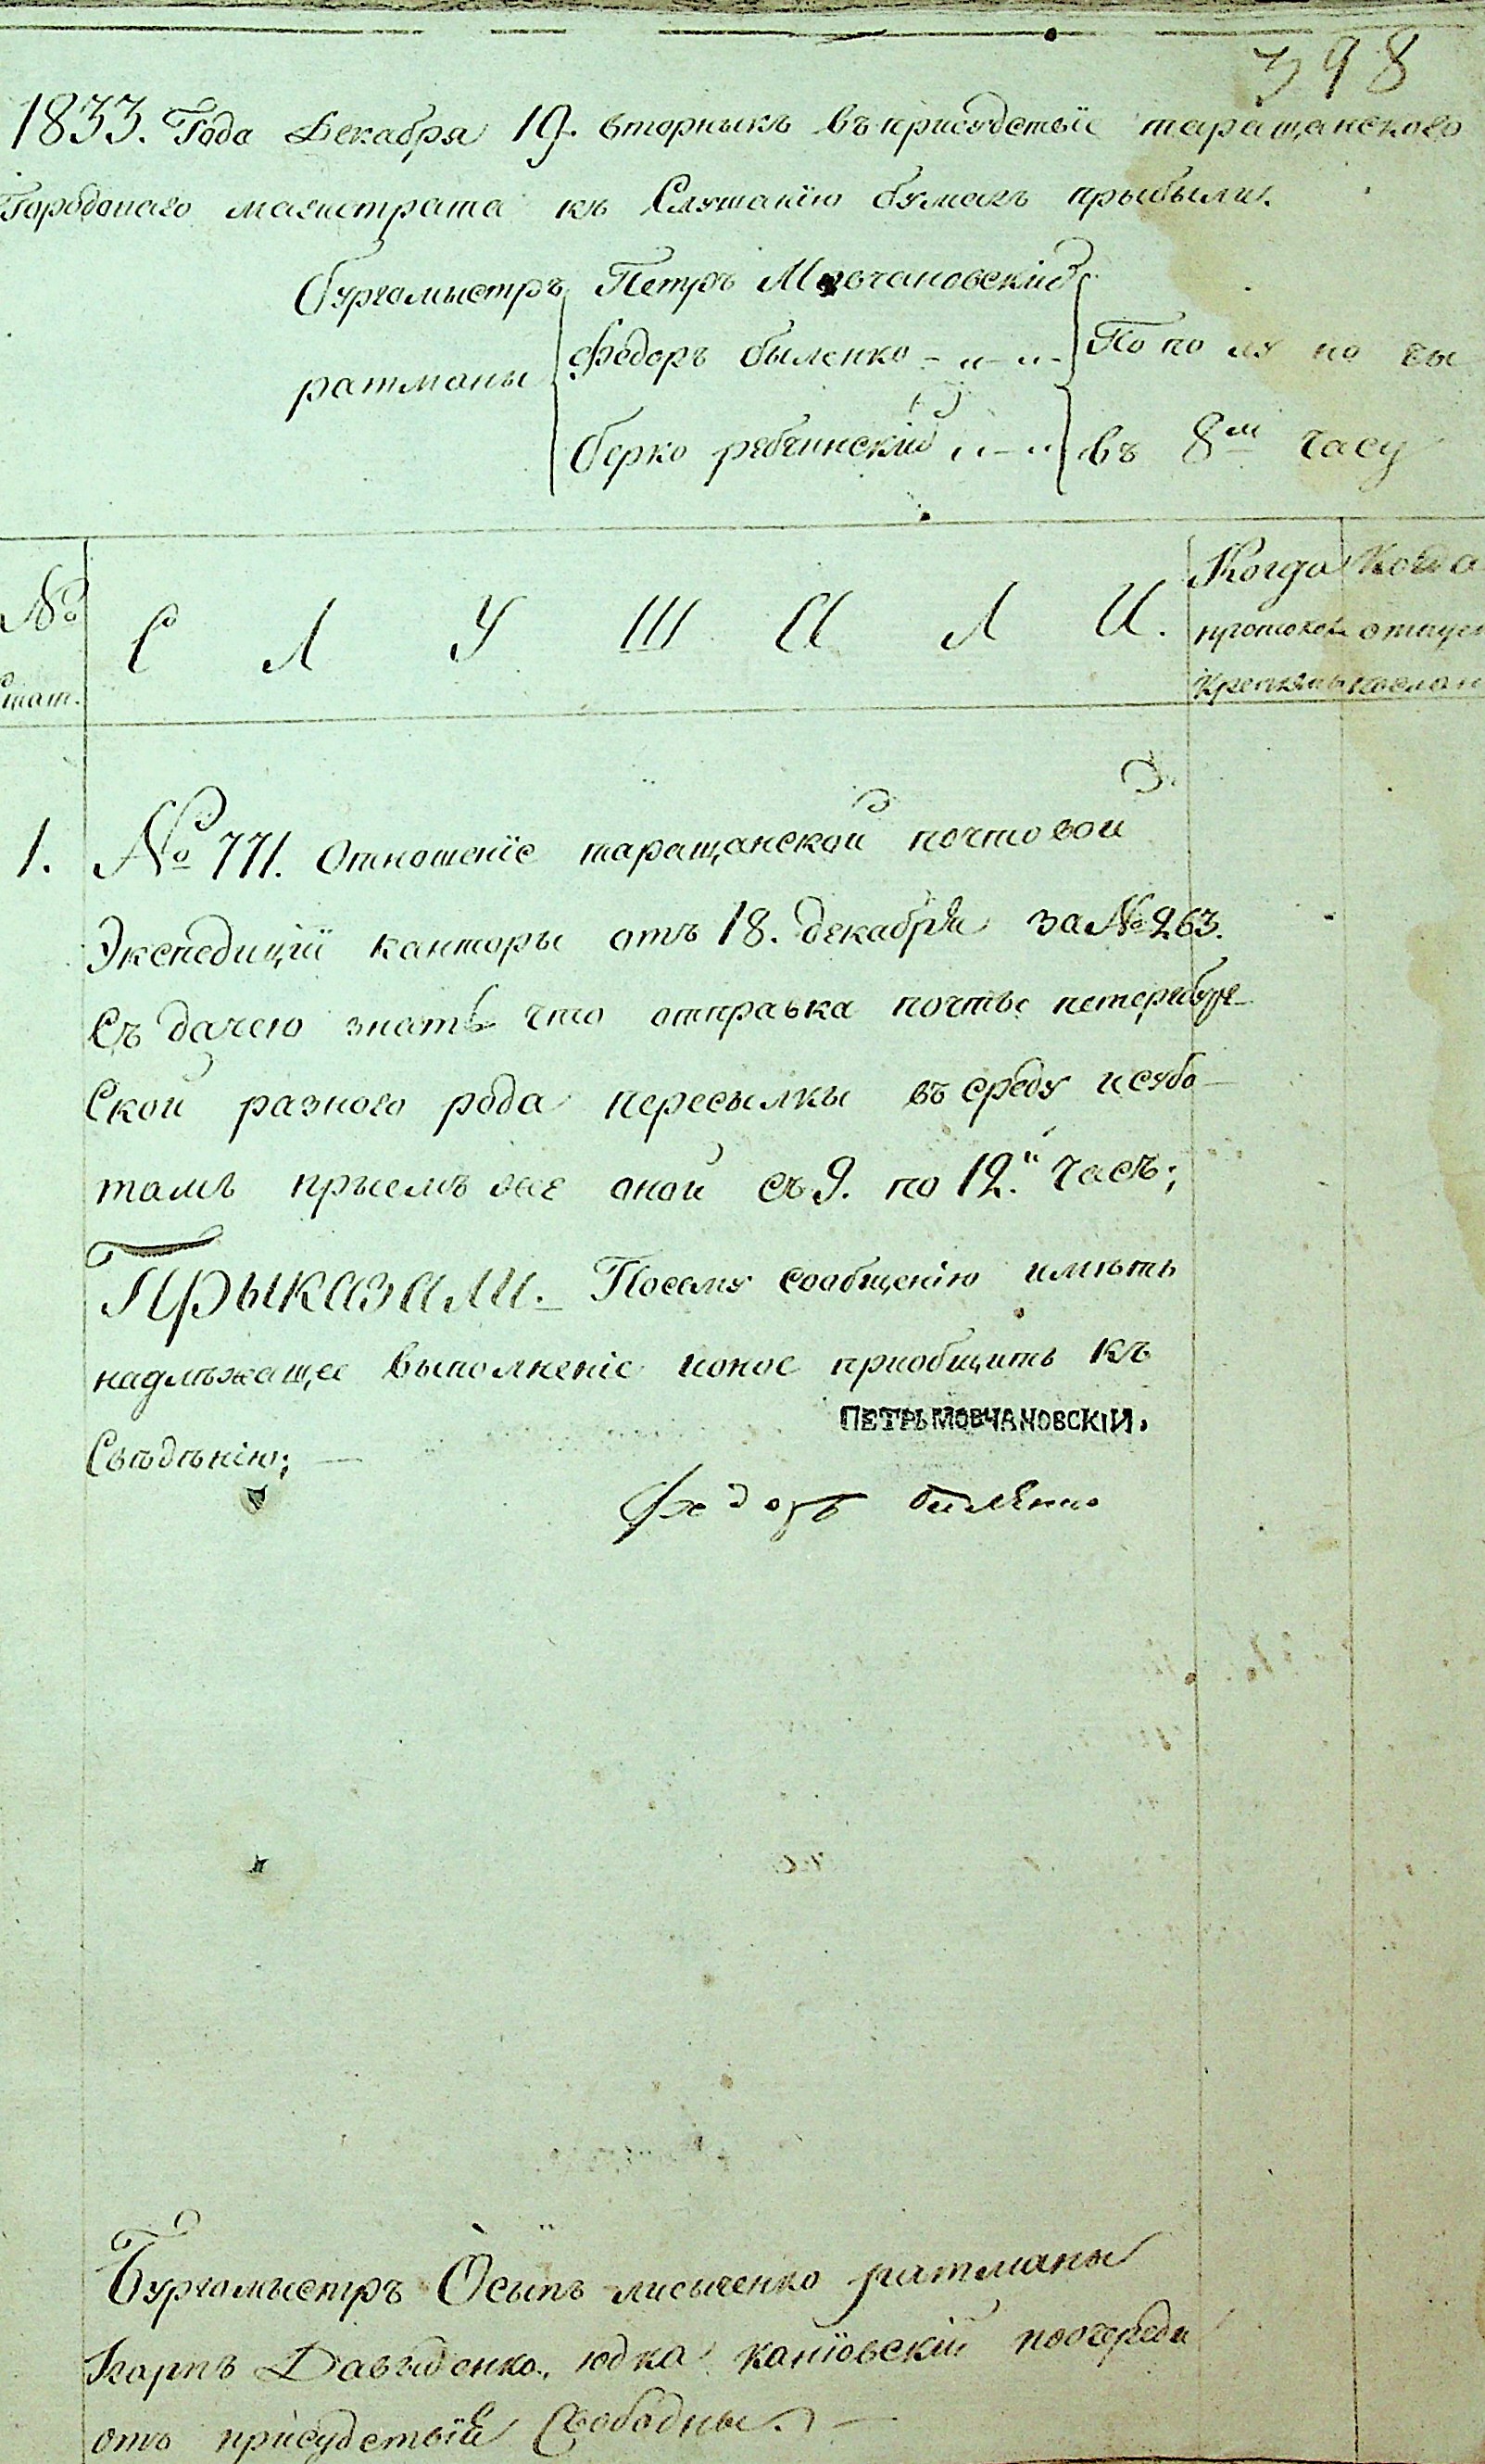 398
1833. Года Декабря 19. вторныкъ въ присудствіе таращанского
Городоваго магистрата къ Слушанію бумагъ прыбыли.
бургомыстръ Петръ Мовчановскій
ратманы
федоръ быленко - „ - „ - По по лу но чы
берко рябчинскій „ - „ въ 8м часу
№ стат.
С Л У Ш А Л И.
Когда протокол
Когда
1. № 771. Отношеніе таращанской почтовой
Экспедиціи канторы отъ 18. декабря за № 263.
Съ дачею знать что отправка почты петербур-
ской разного рода пересылкы въ среду и субо-
тамъ прыемъ же оной съ 9. по 12.й часъ;
Прыказали. Посему сообщенію имѣть
надлѣжащее выполненіе и оное приобщить къ
Свѣдѣнію; —
ПЕТРЪ МОВЧАНОВСКІЙ.
Федоръ билѣнко
Бургомыстръ Осыпъ лисыченко ратманы
Карпъ Давыденко, юдка каніовскій поочереди
отъ присудствій Свободны. —